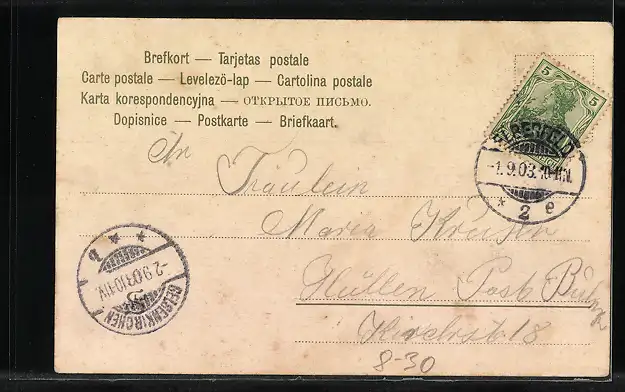 Brefkort — Tarjetas postale
Carte postale — Levelezö-lap — Cartolina postale
Karta korespondencyjna — ОТКРЫТОЕ ПИСЬМО.
Dopisnice — Postkarte — Briefkaart.
5 5
ELBERFELD
-1.9.03.10-11V.
* 2 e
An
Fräulein
Maria
Hüllen Post
Kirchstr 18
8-30
GELSENKIRCHEN
-2.9.03.10-11V.